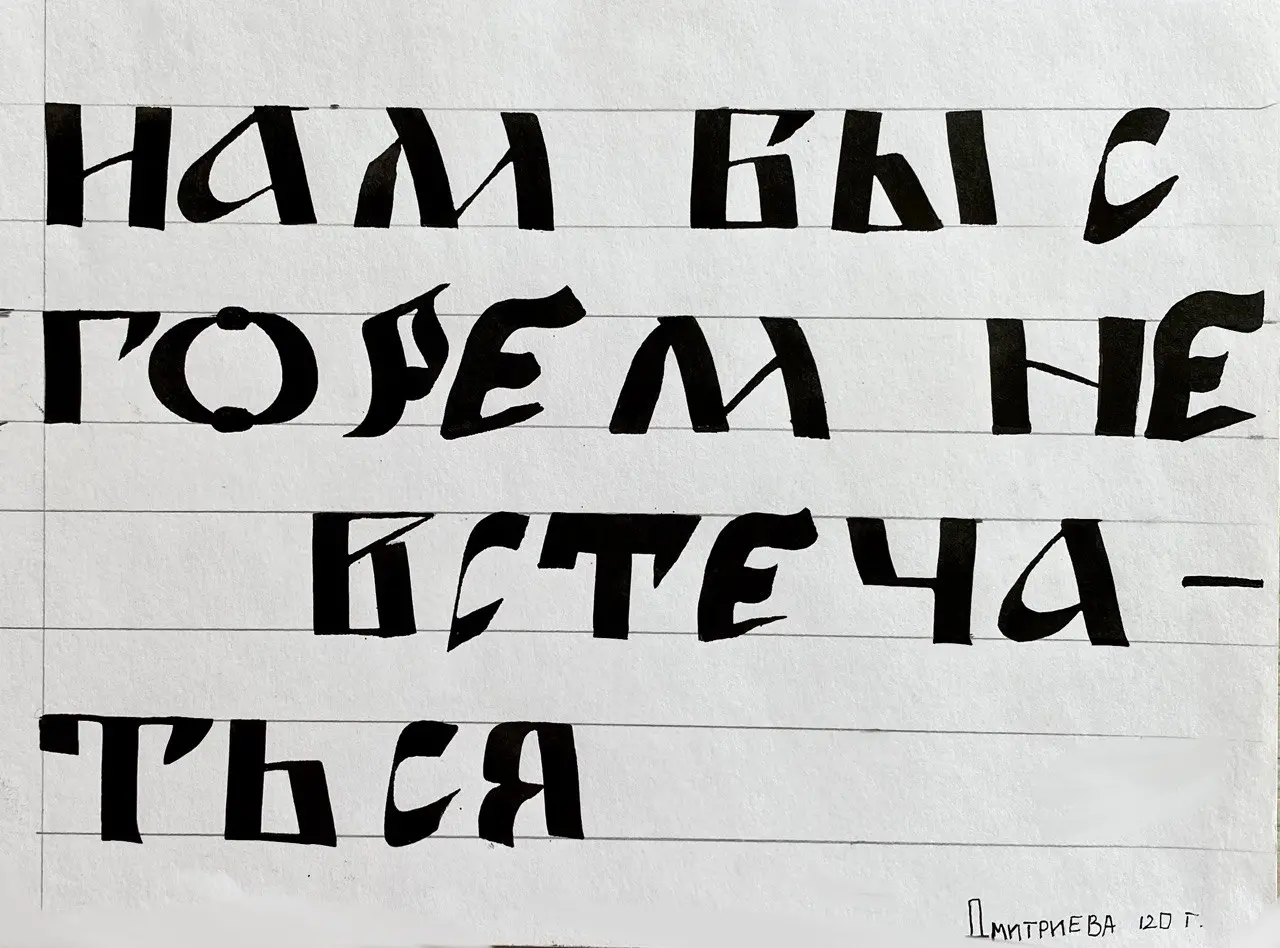 НАМ ВЫ С
ГОРЕМ НЕ
ВСТЕЧА-
ТЬСЯ
ДМИТРИЕВА 120 Г.